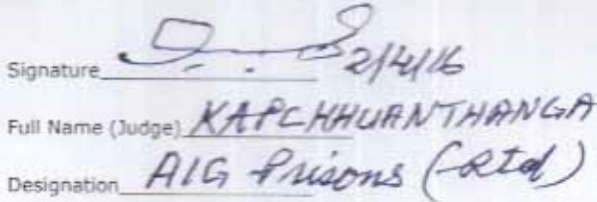 Signature 2/4/16
Full Name (Judge) KAPCHHUANTHANGA
Designation AIG Prisons (Rtd)